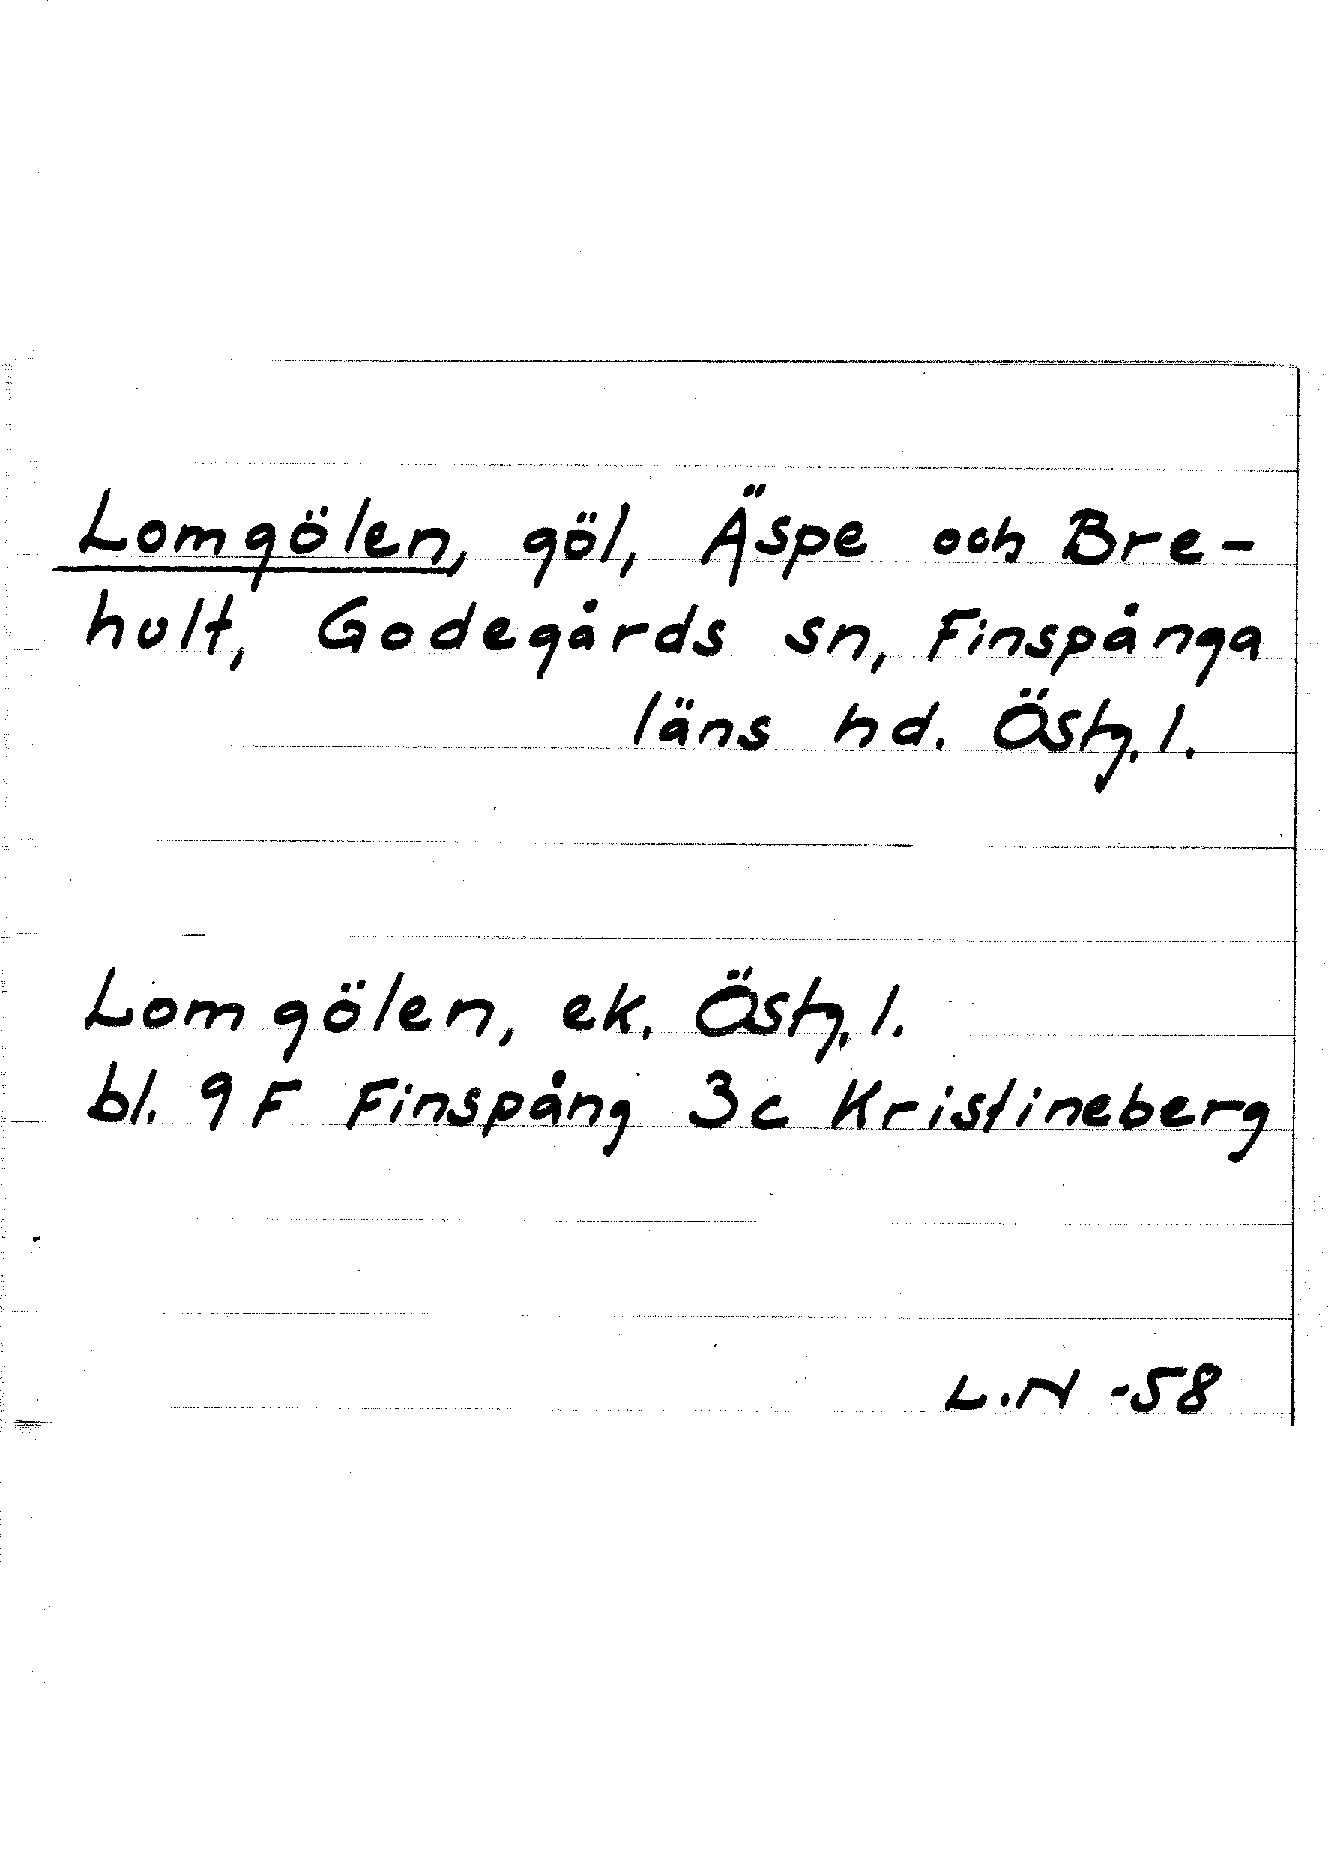 Lomgölen, göl, Äspe och Bre-
hult, Godegårds sn, Finspånga
läns hd. Östg. l.
Lomgölen, ek. Östg. l.
bl. 9 F Finspång 3c Kristineberg
L.N -58